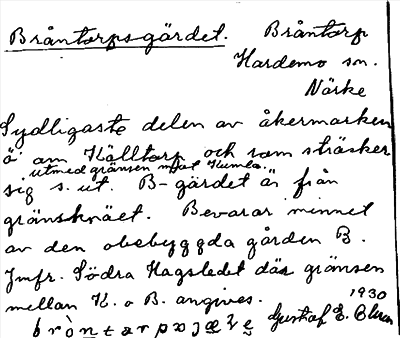 Bråntorpsgärdet. Bråntorp
Hardemo sn.
Närke
Sydligaste delen av åkermarken
å am Källtorp och som sträcker
utmed gränsen mot Kumla.
sig s. ut. B-gärdet är från
gränsknäet. Bevarar minnet
av den obebyggda gården B.
Jmfr. Södra Hagsledet där gränsen
mellan K. o B. angives.
1930
Gustaf E.